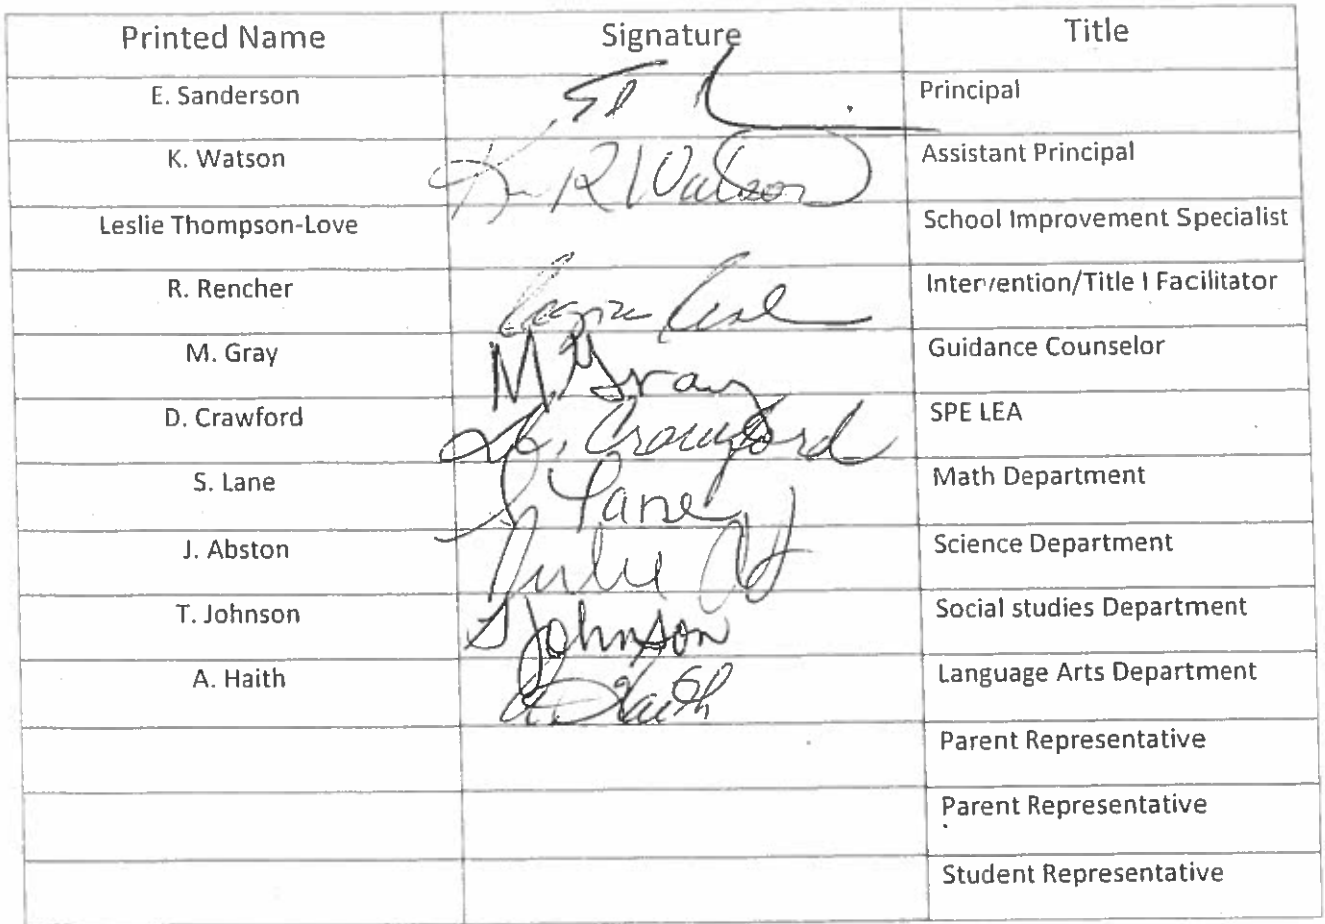 Printed Name Signature Title
E. Sanderson Principal
K. Watson K R Watson Assistant Principal
Leslie Thompson-Love School Improvement Specialist
R. Rencher Intervention/Title I Facilitator
M. Gray M. Gray Guidance Counselor
D. Crawford D. Crawford SPE LEA
S. Lane S Lane Math Department
J. Abston Julie Science Department
T. Johnson T Johnson Social studies Department
A. Haith A. Haith Language Arts Department
Parent Representative
Parent Representative
Student Representative